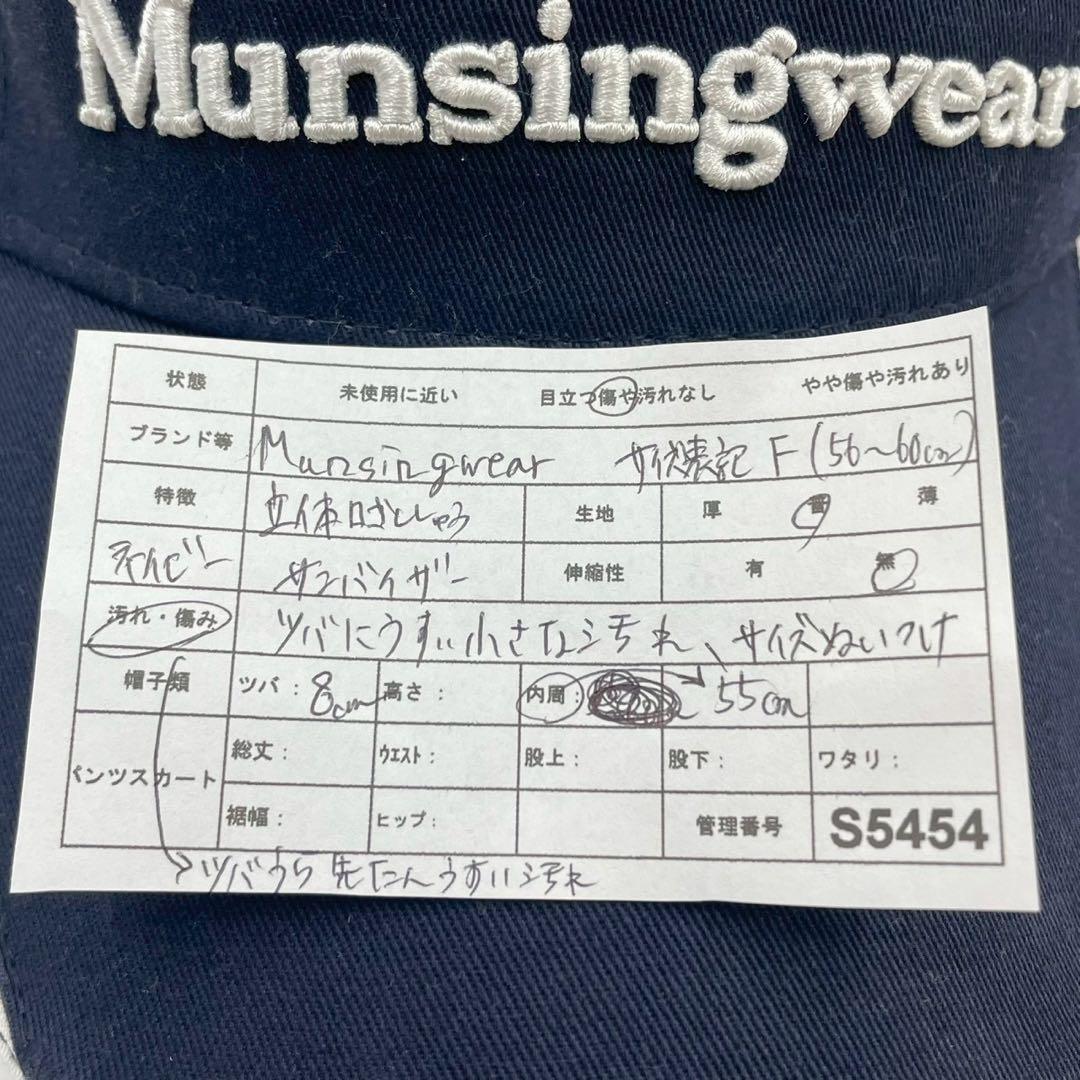 Munsingwear
状態 未使用に近い 目立つ傷や汚れなし やや傷や汚れあり
ブランド等 Munsingwear サイズ表記 F (56〜60cm)
特徴 立体ロゴししゅう 生地 厚 普 薄
ネイビー サンバイザー 伸縮性 有 無
汚れ・傷み ツバにうすい小さな汚れ、サイズぬいつけ
帽子類 ツバ：8cm 高さ： 内周： 55cm
パンツスカート 総丈： ウエスト： 股上： 股下： ワタリ：
裾幅： ヒップ： 管理番号 S5454
ツバうら 先たん うすい汚れ